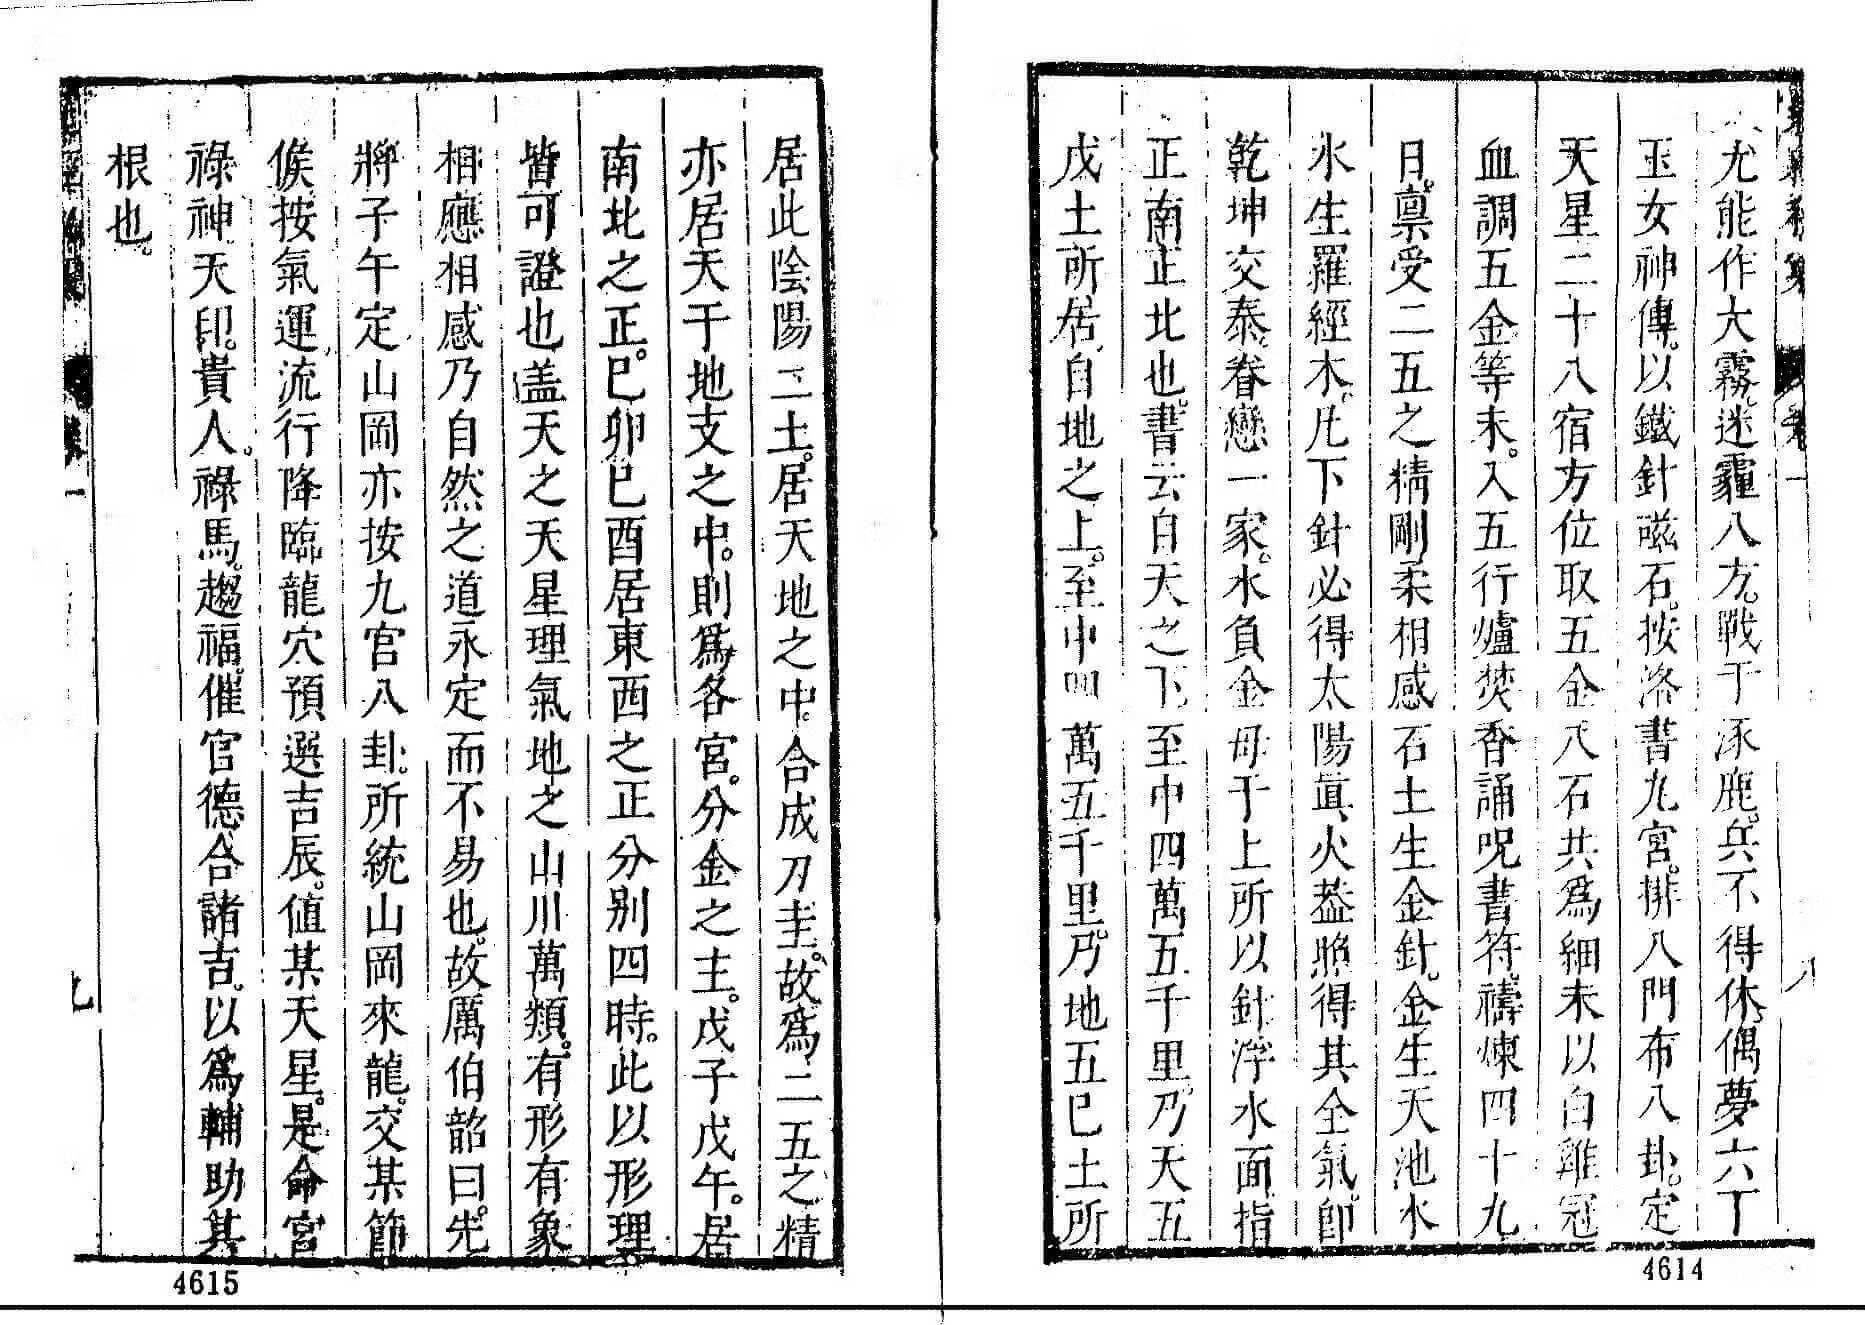 尤能作大霧迷霾八方。戰于涿鹿。兵不得休偶夢六丁
玉女神傳。以鐵針磁石。按洛書九宮。排八門布八卦。定
天星二十八宿方位取五金八石共爲細末以白雞冠
血調五金等末。入五行爐焚香誦呪書符。禱煉四十九
日。禀受二五之精剛柔相感石土生金針。金生天池水
水生羅經木。凡下針必得太陽眞火葢照得其全氣。卽
乾坤交泰。眷戀一家。水負金母于上所以針浮水面指
正南正北也。書云自天之下。至中四萬五千里。乃天五
戊土所居。自地之上。至中四萬五千里。乃地五己土所
八
4614
居此陰陽二土。居天地之中。合成刀圭。故爲二五之精
亦居天干地支之中。則爲各宮。分金之主。戊子戊午。居
南北之正。己卯己酉居東西之正分別四時。此以形理
皆可證也盖天之天星理氣地之山川萬類。有形有象
相應相感乃自然之道永定而不易也。故厲伯韶曰。先
將子午定山岡亦按九宮八卦。所統山岡來龍。交某節
候。按氣運。流行降臨龍穴預選吉辰。值某天星。是命宮
祿神。天印。貴人。祿馬。趨福。催官德合諸吉。以爲輔助其
根也。
卷一
九
4615